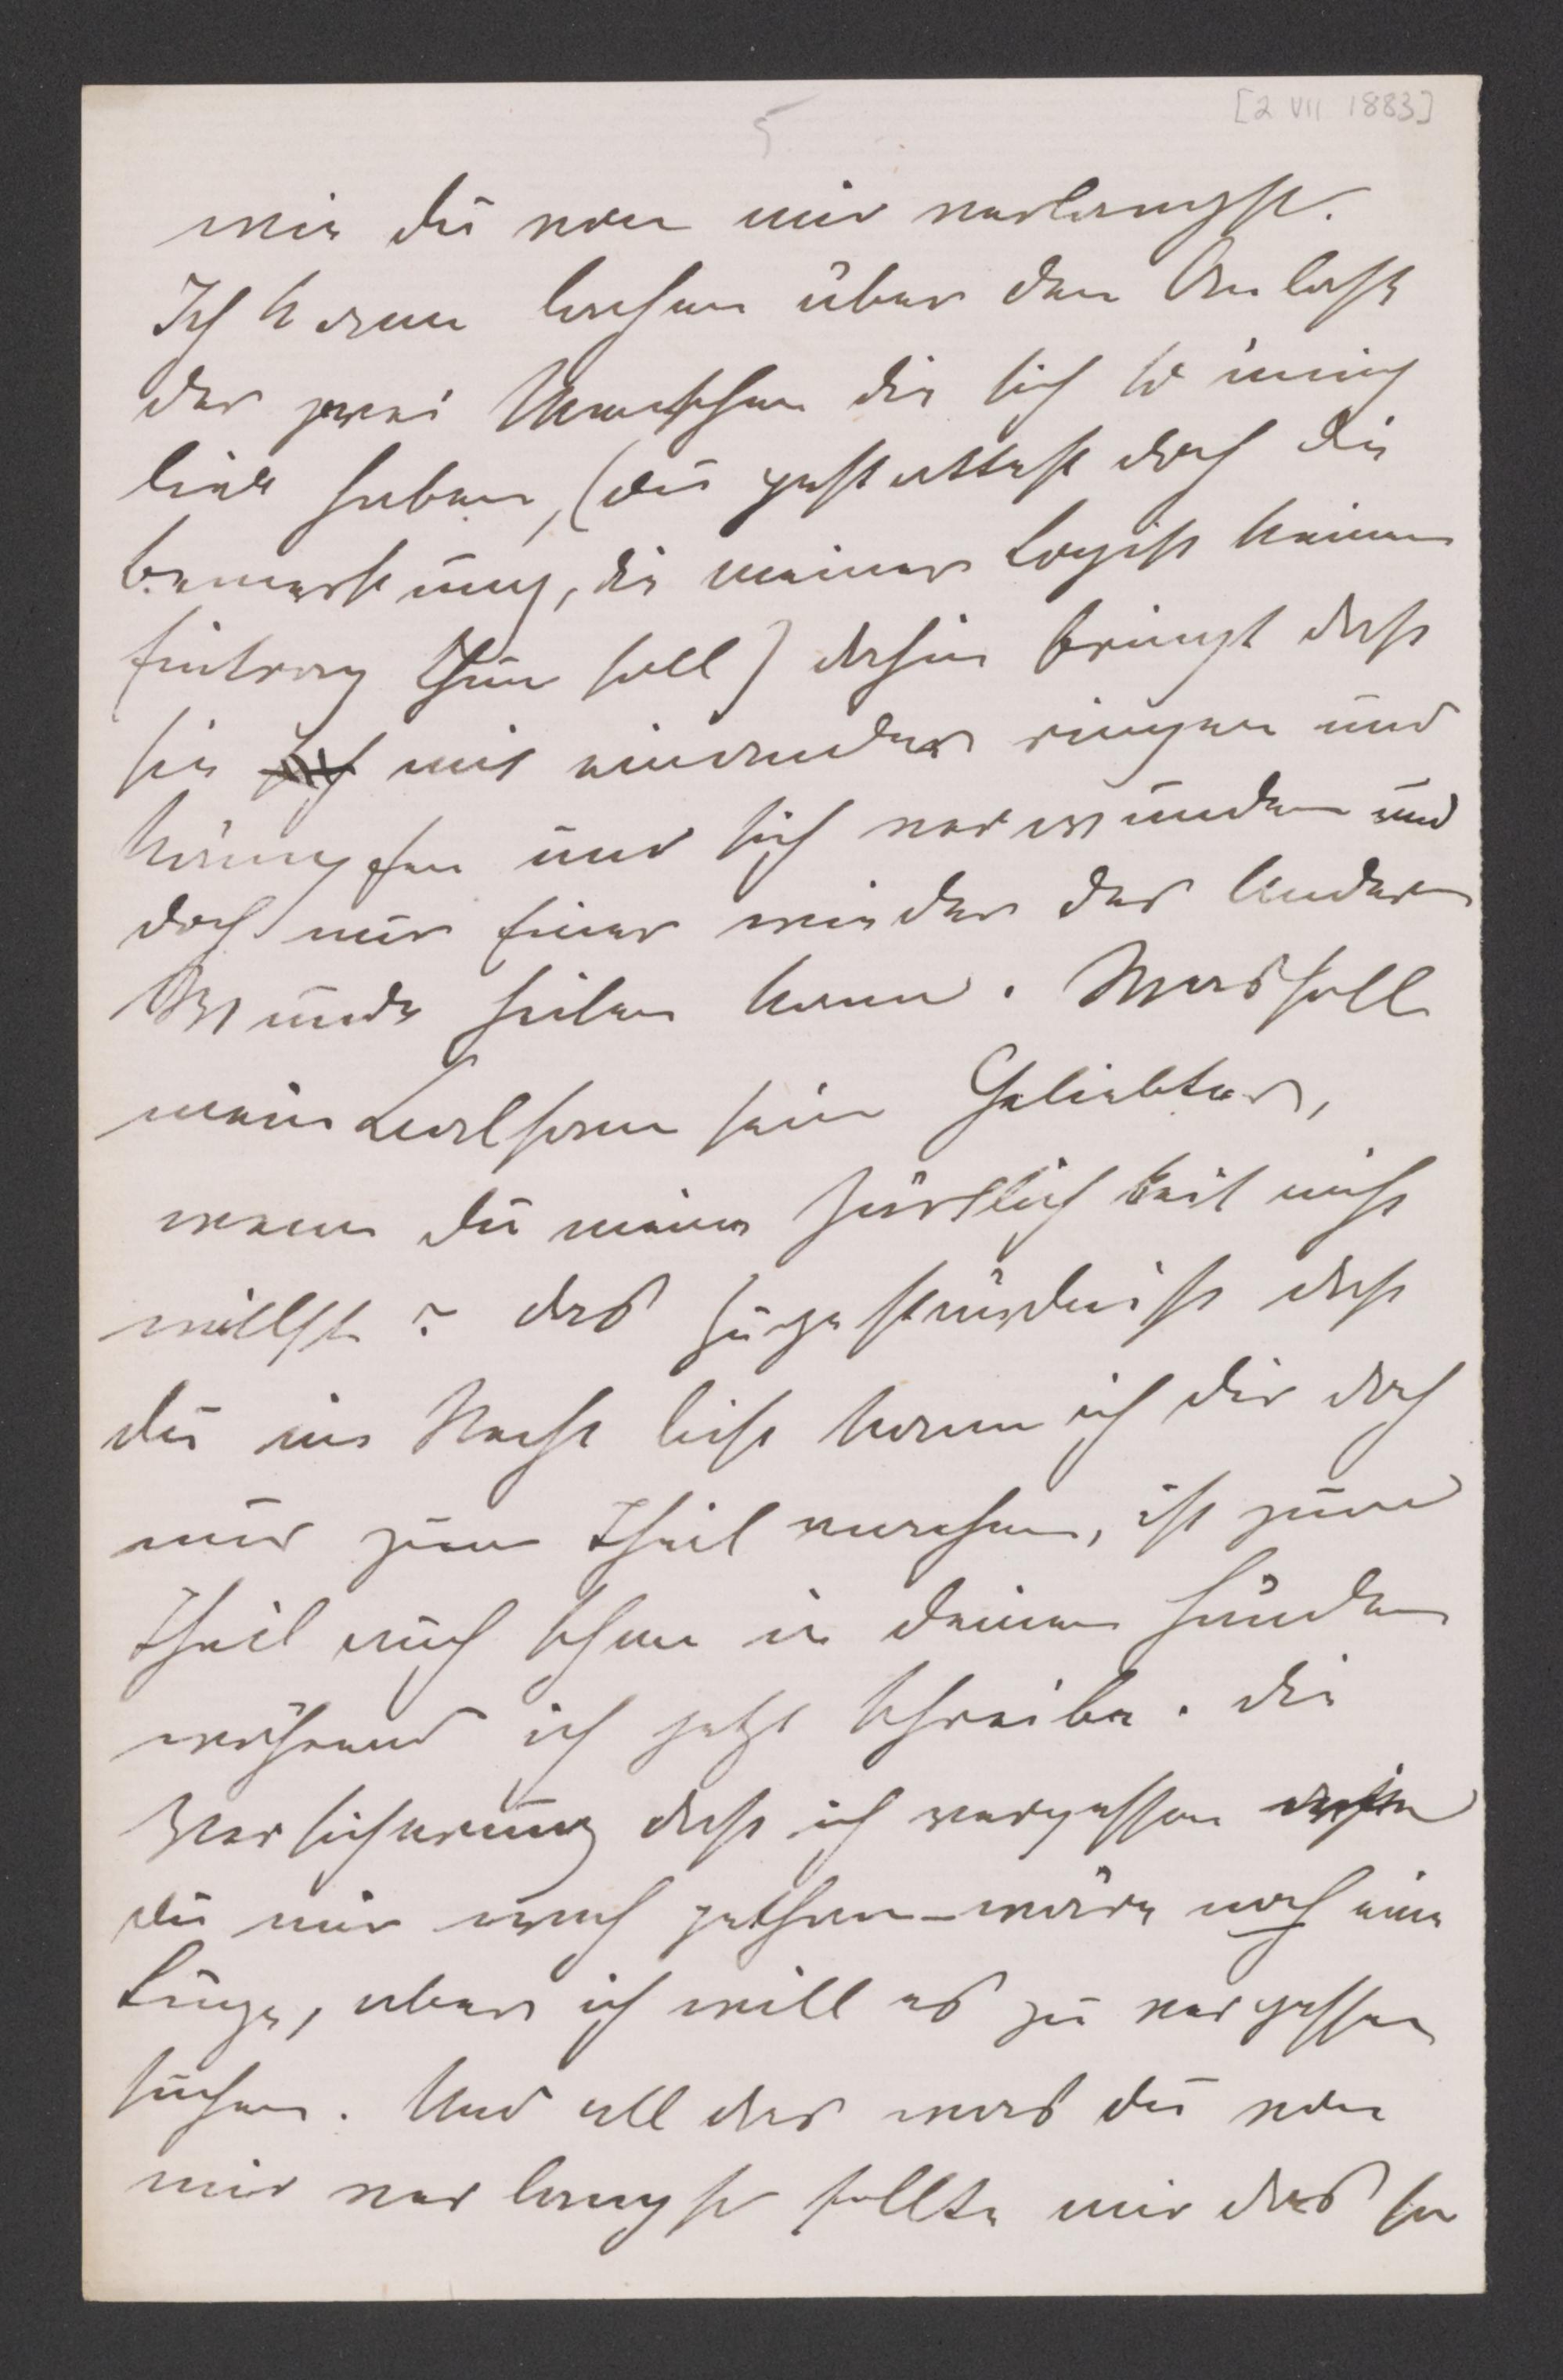 [2 VII 1883]
5
wie Du von mir verlangst.
Ich kann lachen über den Anlaß
der zwei Menschen die sich so innig
lieb haben, (Du gestattest doch die
Bemerkung, die meiner Logik keinen
Eintrag thun soll) dahin bringt daß
sie sich mit einander ringen und
kämpfen und sich verwunden und
doch nur Einer wieder des Andern
Wunde heilen kann. Was soll
mein sein Geliebter,
wenn Du meine Zärtlichkeit nicht
willst? das Zugeständniß daß
Du im Recht bist kann ich Dir doch
nur zum Theil machen, ist zum
Theil auch schon in Deinen Händen
während ich jetzt schreibe. Die
Versicherung daß ich vergessen
Du mir weh gethan – wäre noch eine
Lüge, aber ich will es zu vergessen
suchen. Und all das was Du von
mir verlangst sollte mir das so